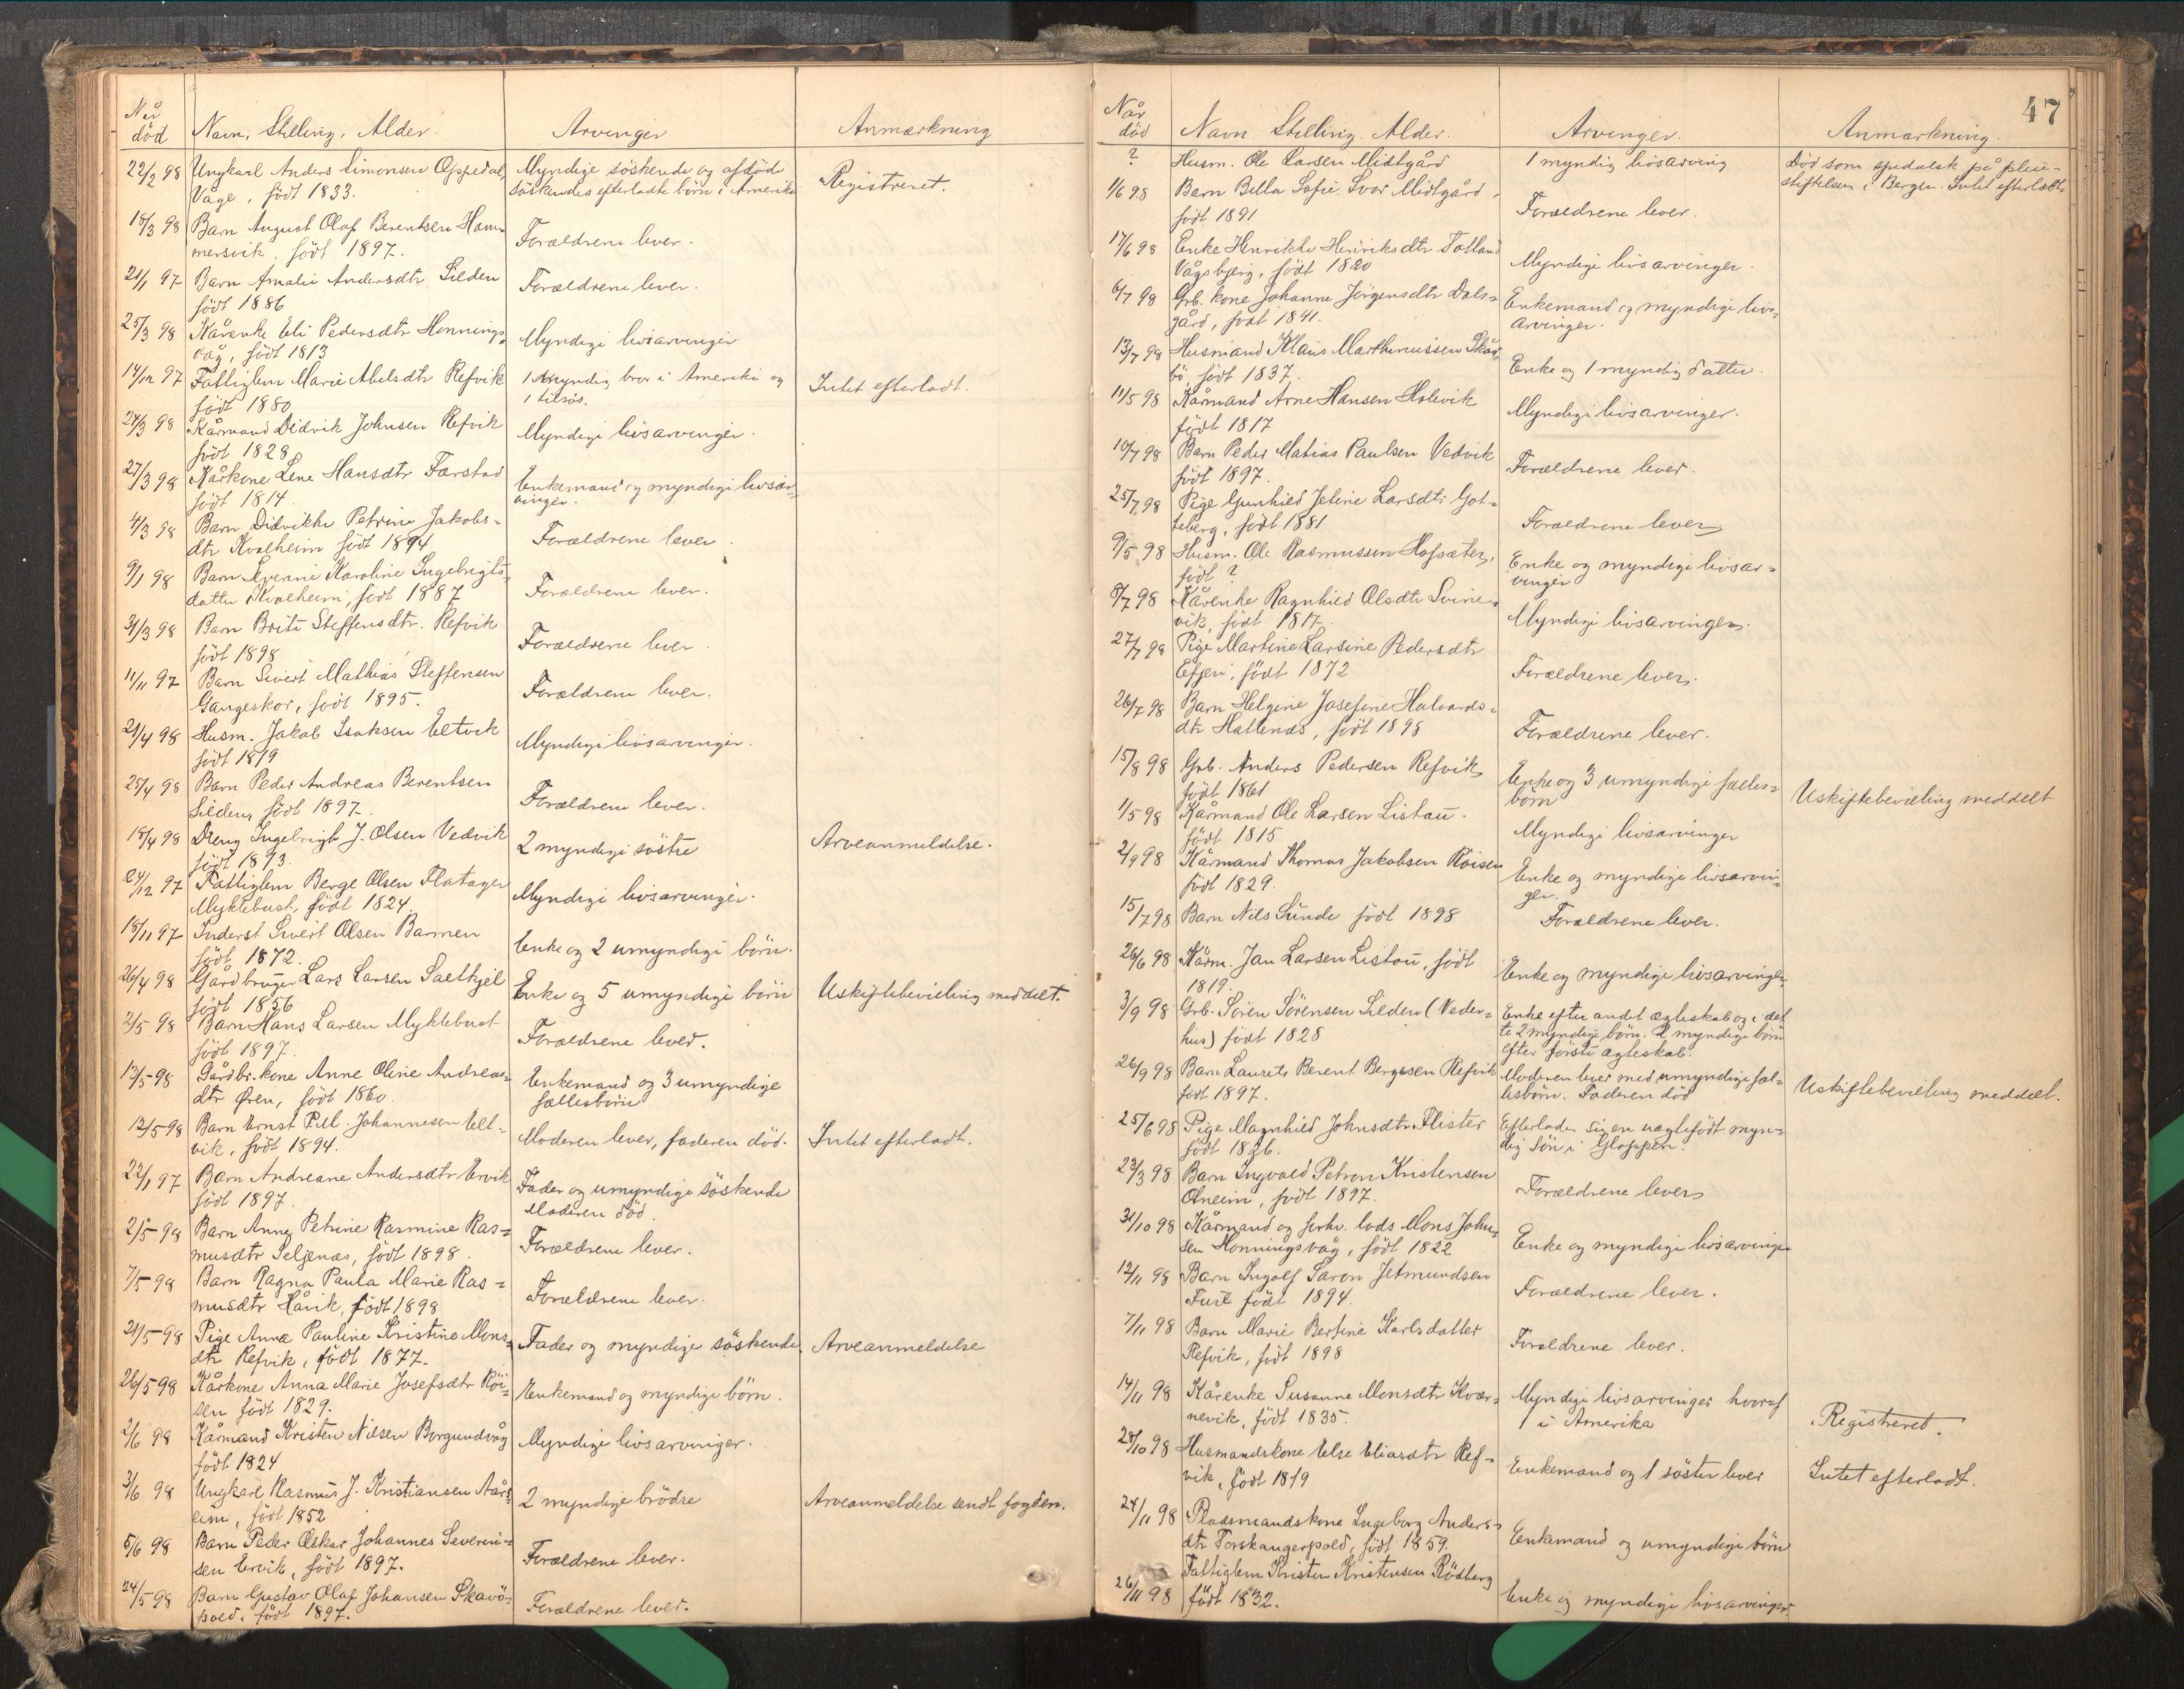 Når
død Navn, Stilling, Alder. Arvinger Anmærkning
22/2 98 Ungkarl Anders Simonsen Oppedal, Myndige söskende og afdöde
Våge, födt 1833. söskendes efterladte börn i Amerika Registreret.
18/3 98 Barn August Olaf Berentsen Ham-
mersvik, födt 1897. Forældrene lever.
21/1 97 Barn Amalie Andersdtr Silden
födt 1886 Forældrene lever.
25/3 98 Kårenke Eli Pedersdtr Honnings-
våg, födt 1813 Myndige livsarvinger
14/12 97 Fattiglem Marie Abelsdtr Refvik 1 myndig bror i Amerika og Intet efterladt.
födt 1880 1 tilsøs.
24/3 98 Kårmand Didrik Johnsen Refvik
födt 1828 Myndige livsarvinger.
27/3 98 Kårkone Lene Hansdtr Færstad Enkemand og myndige livsar-
födt 1814. vinger.
4/3 98 Barn Didrikke Petrine Jakobs-
dtr Kvalheim födt 1894 Forældrene lever.
9/1 98 Barn Severine Karoline Ingebrigts-
datter Kvalheim, födt 1887 Forældrene lever.
31/3 98 Barn Brite Steffensdtr. Refvik
födt 1898 Forældrene lever.
11/11 97 Barn Sivert Mathias Steffensen
Gangeskor, födt 1895. Forældrene lever.
21/4 98 Husm. Jakob Isaksen Eltvik
födt 1819 Myndige livsarvinger.
25/4 98 Barn Peder Andreas Berentsen
Silden, födt 1897. Forældrene lever.
18/4 98 Dreng Ingebrigt J. Olsen Vedvik 2 myndige söstre Arveanmeldelse.
födt 1893.
24/12 97 Fattiglem Berge Olsen Flatager
Myklebust, födt 1824. Myndige livsarvinger.
18/11 97 Inderst Sivert Olsen Barmen
födt 1872. Enke og 2 umyndige börn.
26/4 98 Gårdbruger Lars Larsen Saltkjel Enke og 5 umyndige börn Uskiftebevilling meddelt.
födt 1856
2/5 98 Barn Hans Larsen Myklebust
födt 1897. Forældrene lever.
13/5 98 Gårdbr. kone Anne Oline Andreas- Enkemand og 3 umyndige
dtr Øren, födt 1860. fællesbörn
12/5 98 Barn Ernst Pill. Johannesen Elt-
vik, födt 1894. Moderen lever, faderen död. Intet efterladt.
22/1 97 Barn Andreane Andersdtr Ervik Fader og umyndige söskende
födt 1897 Moderen död.
2/5 98 Barn Anne Petrine Rasmine Ras-
musdtr Seljenæs, födt 1898. Forældrene lever.
7/5 98 Barn Ragna Paula Marie Ras-
musdtr Hårik, födt 1898 Forældrene lever.
21/5 98 Pige Anna Pauline Kristine Mons-
dtr Refvik, födt 1877. Fader og myndige söskende. Arveanmeldelse
26/5 98 Kårkone Anna Marie Josefsdtr Röi-
sen födt 1829. Enkemand og myndige börn.
2/6 98 Kårmand Kristen Nilsen Borgundvåg Myndige livsarvinger.
födt 1824
3/6 98 Ungkarl Rasmus J. Kristiansen Aårs-
eim, födt 1852 2 myndige brödre Arveanmeldelse sendt fogden.
5/6 98 Barn Peder Oskar Johannes Severin-
sen Ervik, födt 1897. Forældrene lever.
24/5 98 Barn Gustav Olaf Johansen Skavö-
pold, födt 1897. Forældrene lever.
47
Når
död Navn. Stilling. Alder. Arvinger. Anmærkning.
? Husm. Ole Larsen Midtgård 1 myndig livsarving Död som spedalsk på pleie-
stiftelsen i Bergen. Intet efterladt.
1/6 98 Barn Bella Sofie Ivar Midtgård,
födt 1891 Forældrene lever.
17/6 98 Enke Henrikke Henriksdtr Totland
Vågsbjerg, födt 1820 Myndige livsarvinger.
6/7 98 Grb. kone Johanne Jörgensdtr Dals- Enkemand og myndige livs-
gård, födt 1841. arvinger.
13/7 98 Husmand Klaus Marthinussen Skår-
bö, födt 1837. Enke og 1 myndig datter.
11/5 98 Kårmand Arne Hansen Holevik
födt 1817 Myndige livsarvinger.
10/7 98 Barn Peder Matias Paulsen Vedvik
födt 1897. Forældrene lever.
25/7 98 Pige Gunhild Jetine Larsdtr Got-
teberg, födt 1881 Forældrene lever
9/5 98 Husm. Ole Rasmussen Hofsæter, Enke og myndige livsar-
födt ? vinger
8/7 98 Kårenke Ragnhild Olsdtr Svine-
vik, födt 1817. Myndige livsarvinger.
27/7 98 Pige Martine Larsine Pedersdtr
Effjen, födt 1872 Forældrene lever.
26/7 98 Barn Helgine Josefine Halvards-
dtr Hallenæs, födt 1898 Forældrene lever.
15/8 98 Grb. Anders Pedersen Refvik Enke og 3 umyndige fælles- Uskiftebevilling meddelt
födt 1861 börn
1/5 98 Kårmand Ole Larsen Listau.
födt 1815 Myndige livsarvinger
2/9 98 Kårmand Thomas Jakobsen Röisen Enke og myndige livsarvin-
födt 1829. ger.
15/7 98 Barn Nils Sunde födt 1898 Forældrene lever.
26/6 98 Kårm. Jan Larsen Listou, födt Enke og myndige livsarvinger
1819.
3/9 98 Grb. Sören Sörensen Silden (Veder- Enke efter andet ægteskab og i det-
hus) födt 1828 te 2 myndige börn. 2 myndige börn
efter förste ægteskab.
26/9 98 Barn Laurets Berent Bergesen Refvik Moderen lever med umyndige fæl- Uskiftebevilling meddelt.
födt 1897. lesbörn. Faderen död
25/6 98 Pige Magnhild Johnsdtr Flister Efterlader sig en uægtefödt myn-
födt 1826. dig sön i Gloppen.
23/3 98 Barn Ingvald Petron Kristensen
Otneim, födt 1897. Forældrene lever
31/10 98 Kårmand og forhv. lods Mons John-
sen Honningsvåg, födt 1822 Enke og myndige livsarvinger
12/11 98 Barn Ingolf Saron Jetmundsen
Fure födt 1894. Forældrene lever.
7/11 98 Barn Marie Bertine Karlsdatter
Refvik, födt 1898 Forældrene lever.
14/11 98 Kårenke Susanne Monsdtr Kvær- Myndige livsarvinger hvoraf
nevik, födt 1835. 1 i Amerika Registreret.
28/10 98 Husmandskone Else Eliasdtr Ref-
vik, födt 1819 Enkemand og 1 söster lever Intet efterladt.
24/11 98 Pladsmandskone Ingeborg Anders-
dtr Torskangerpold, födt 1859. Enkemand og umyndige börn
26/11 98 Fattiglem Kristen Kristensen Rösberg
födt 1832. Enke og myndige livsarvinger